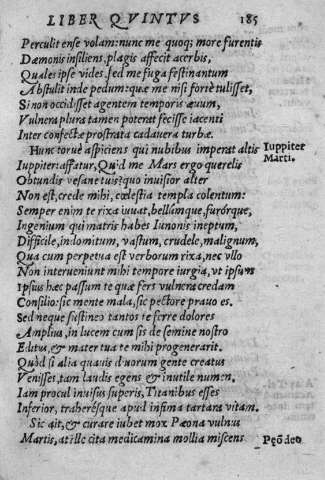 LIBER QVINTVS 185
Perculit ense volam: nunc me quoq; more furentis
Dæmonis insiliens, plagis affecit acerbis,
Quales ipse vides. sed me fuga festinantum
Abstulit inde pedum: quæ me nisi forte tulisset,
Si non occidisset agentem temporis æuum,
Vulnera plura tamen poterat fecisse iacenti
Inter confectæ prostrata cadauera turbæ.
Hunc toruè aspiciens qui nubibus imperat altis
Iuppiter affatur, Quid me Mars ergo querelis
Iuppiter
Marti.
Obtundis vesane tuis? quo inuisior alter
Non est, crede mihi, cœlestia templa colentum:
Semper enim te rixa iuuat, bellúmque, furórque,
Ingenium qui matris habes Iunonis ineptum,
Difficile, indomitum, vastum, crudele, malignum,
Qua cum perpetua est verborum rixa, nec vllo
Non interueniunt mihi tempore iurgia, vt ipsum
Ipsius hæc passum te quæ fers vulnera credam
Consilio: sic mente mala, sic pectore prauo es.
Sed neque sustineo tantos te ferre dolores
Amplius, in lucem cum sis de semine nostro
Editus, & mater tua te mihi progenerarit.
Quòd si alia quauis diuorum gente creatus
Venisses, tam laudis egens & inutile numen,
Iam procul inuisus superis, Titanibus esses
Inferior, traherésque apud infima tartara vitam.
Sic ait, & curare iubet mox Pæona vulnus
Martis, at ille cita medicamina mollia miscens